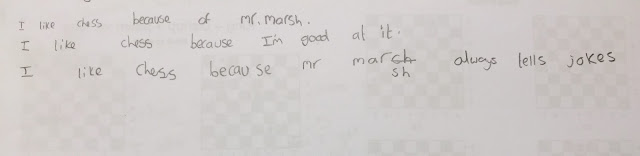 I like chess because of mr. marsh.
I like chess because I'm good at it.
I like chess because mr marsh always tells jokes